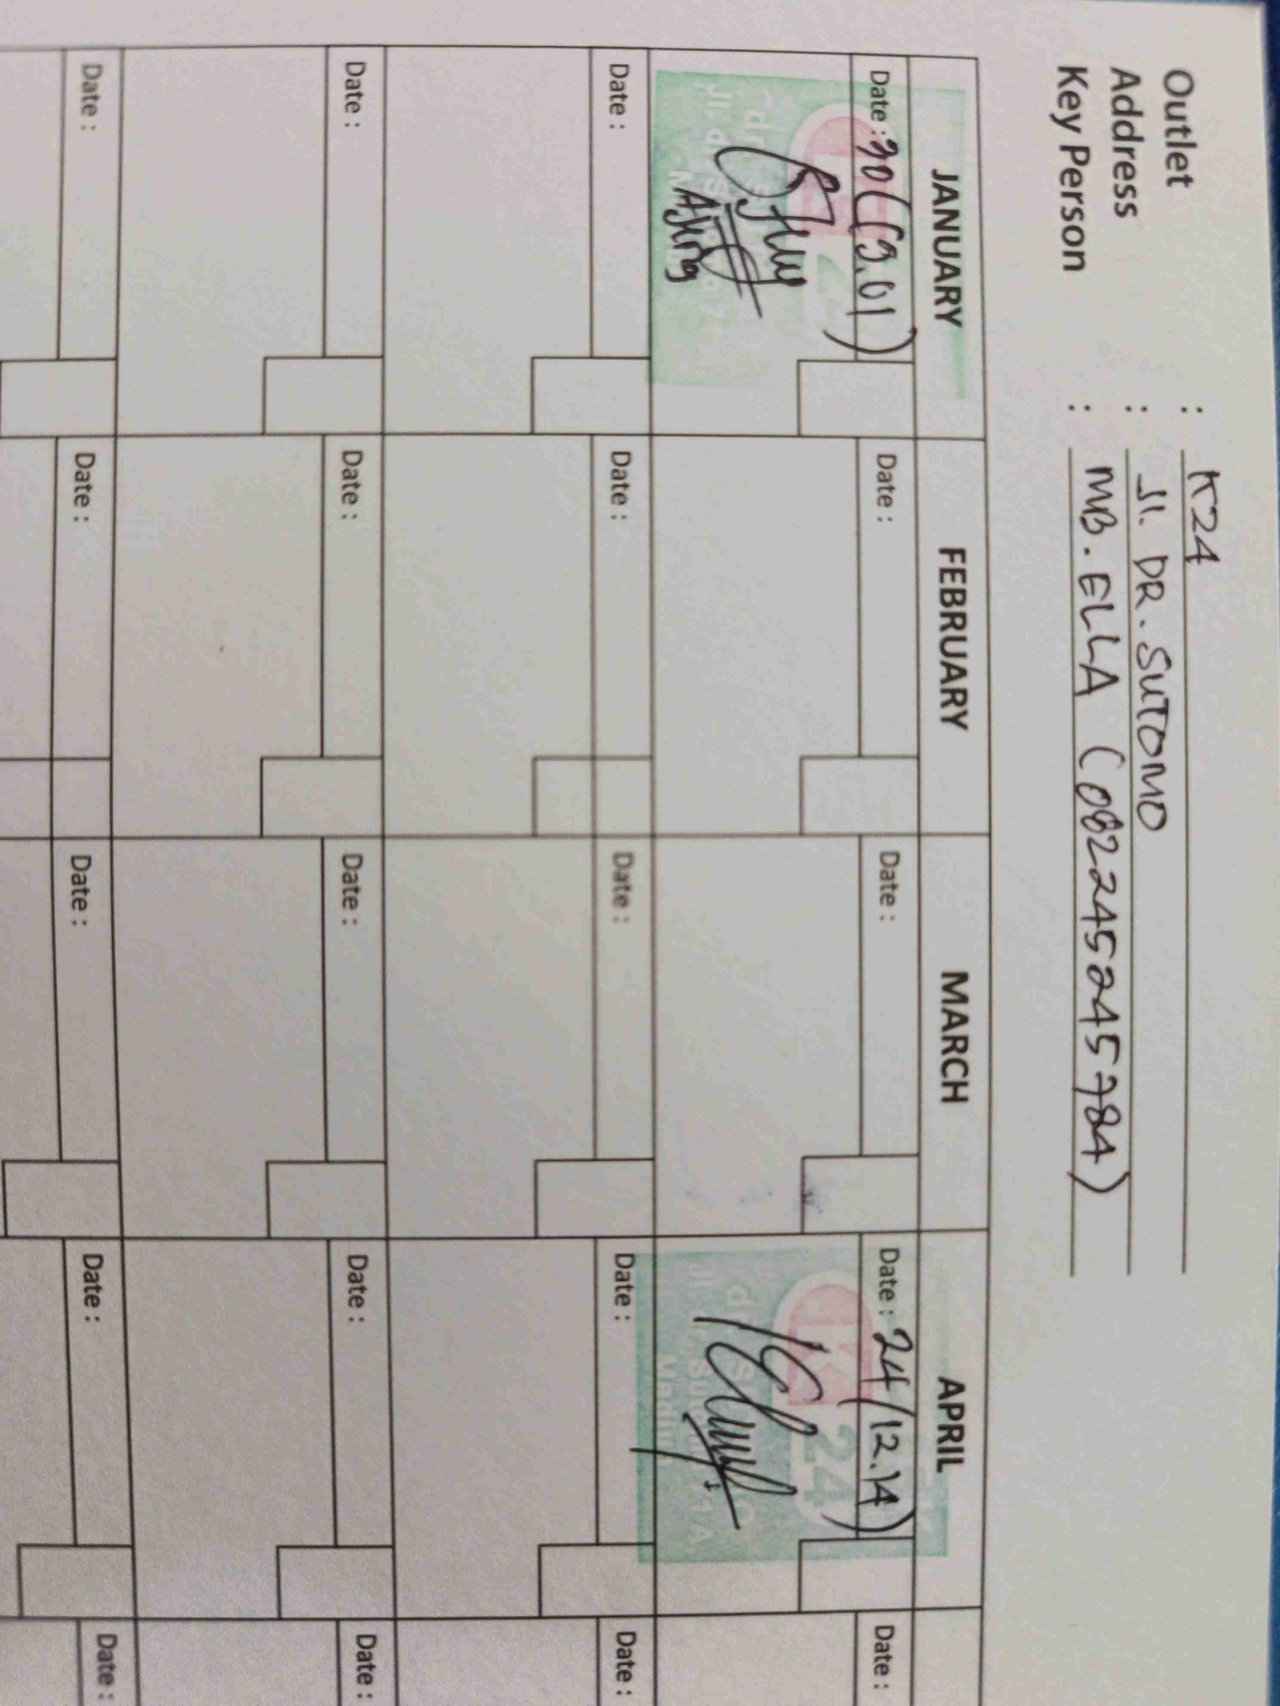 Outlet : K24
Address : Jl. DR. SUTOMO
Key Person : MB. ELLA (082245245784)
JANUARY FEBRUARY MARCH APRIL
Date : 30 (19.01) Date : Date : Date : 24/12.14) Date :
K 24
Ajeng
Date : Date : Date : Date : Date :
Date : Date : Date : Date : Date :
Date : Date : Date : Date : Date :